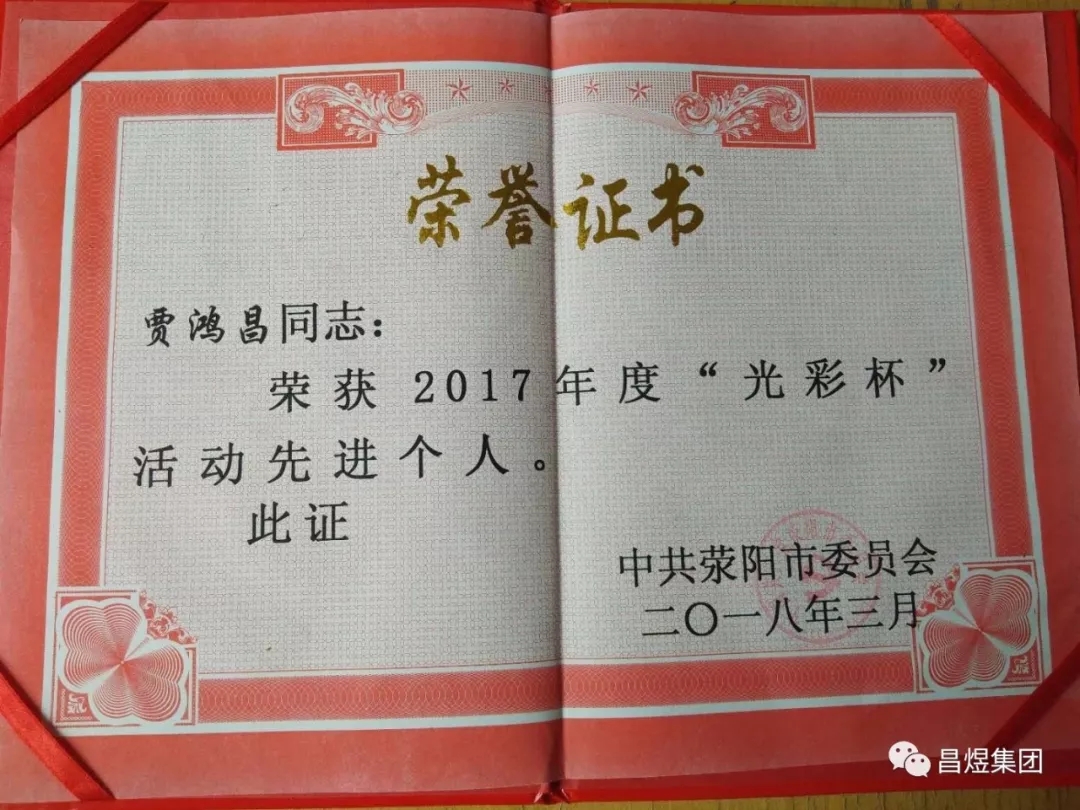 荣誉证书
贾鸿昌同志：
荣获2017年度“光彩杯”
活动先进个人。
此证
中共荥阳市委员会
二〇一八年三月
昌煜集团